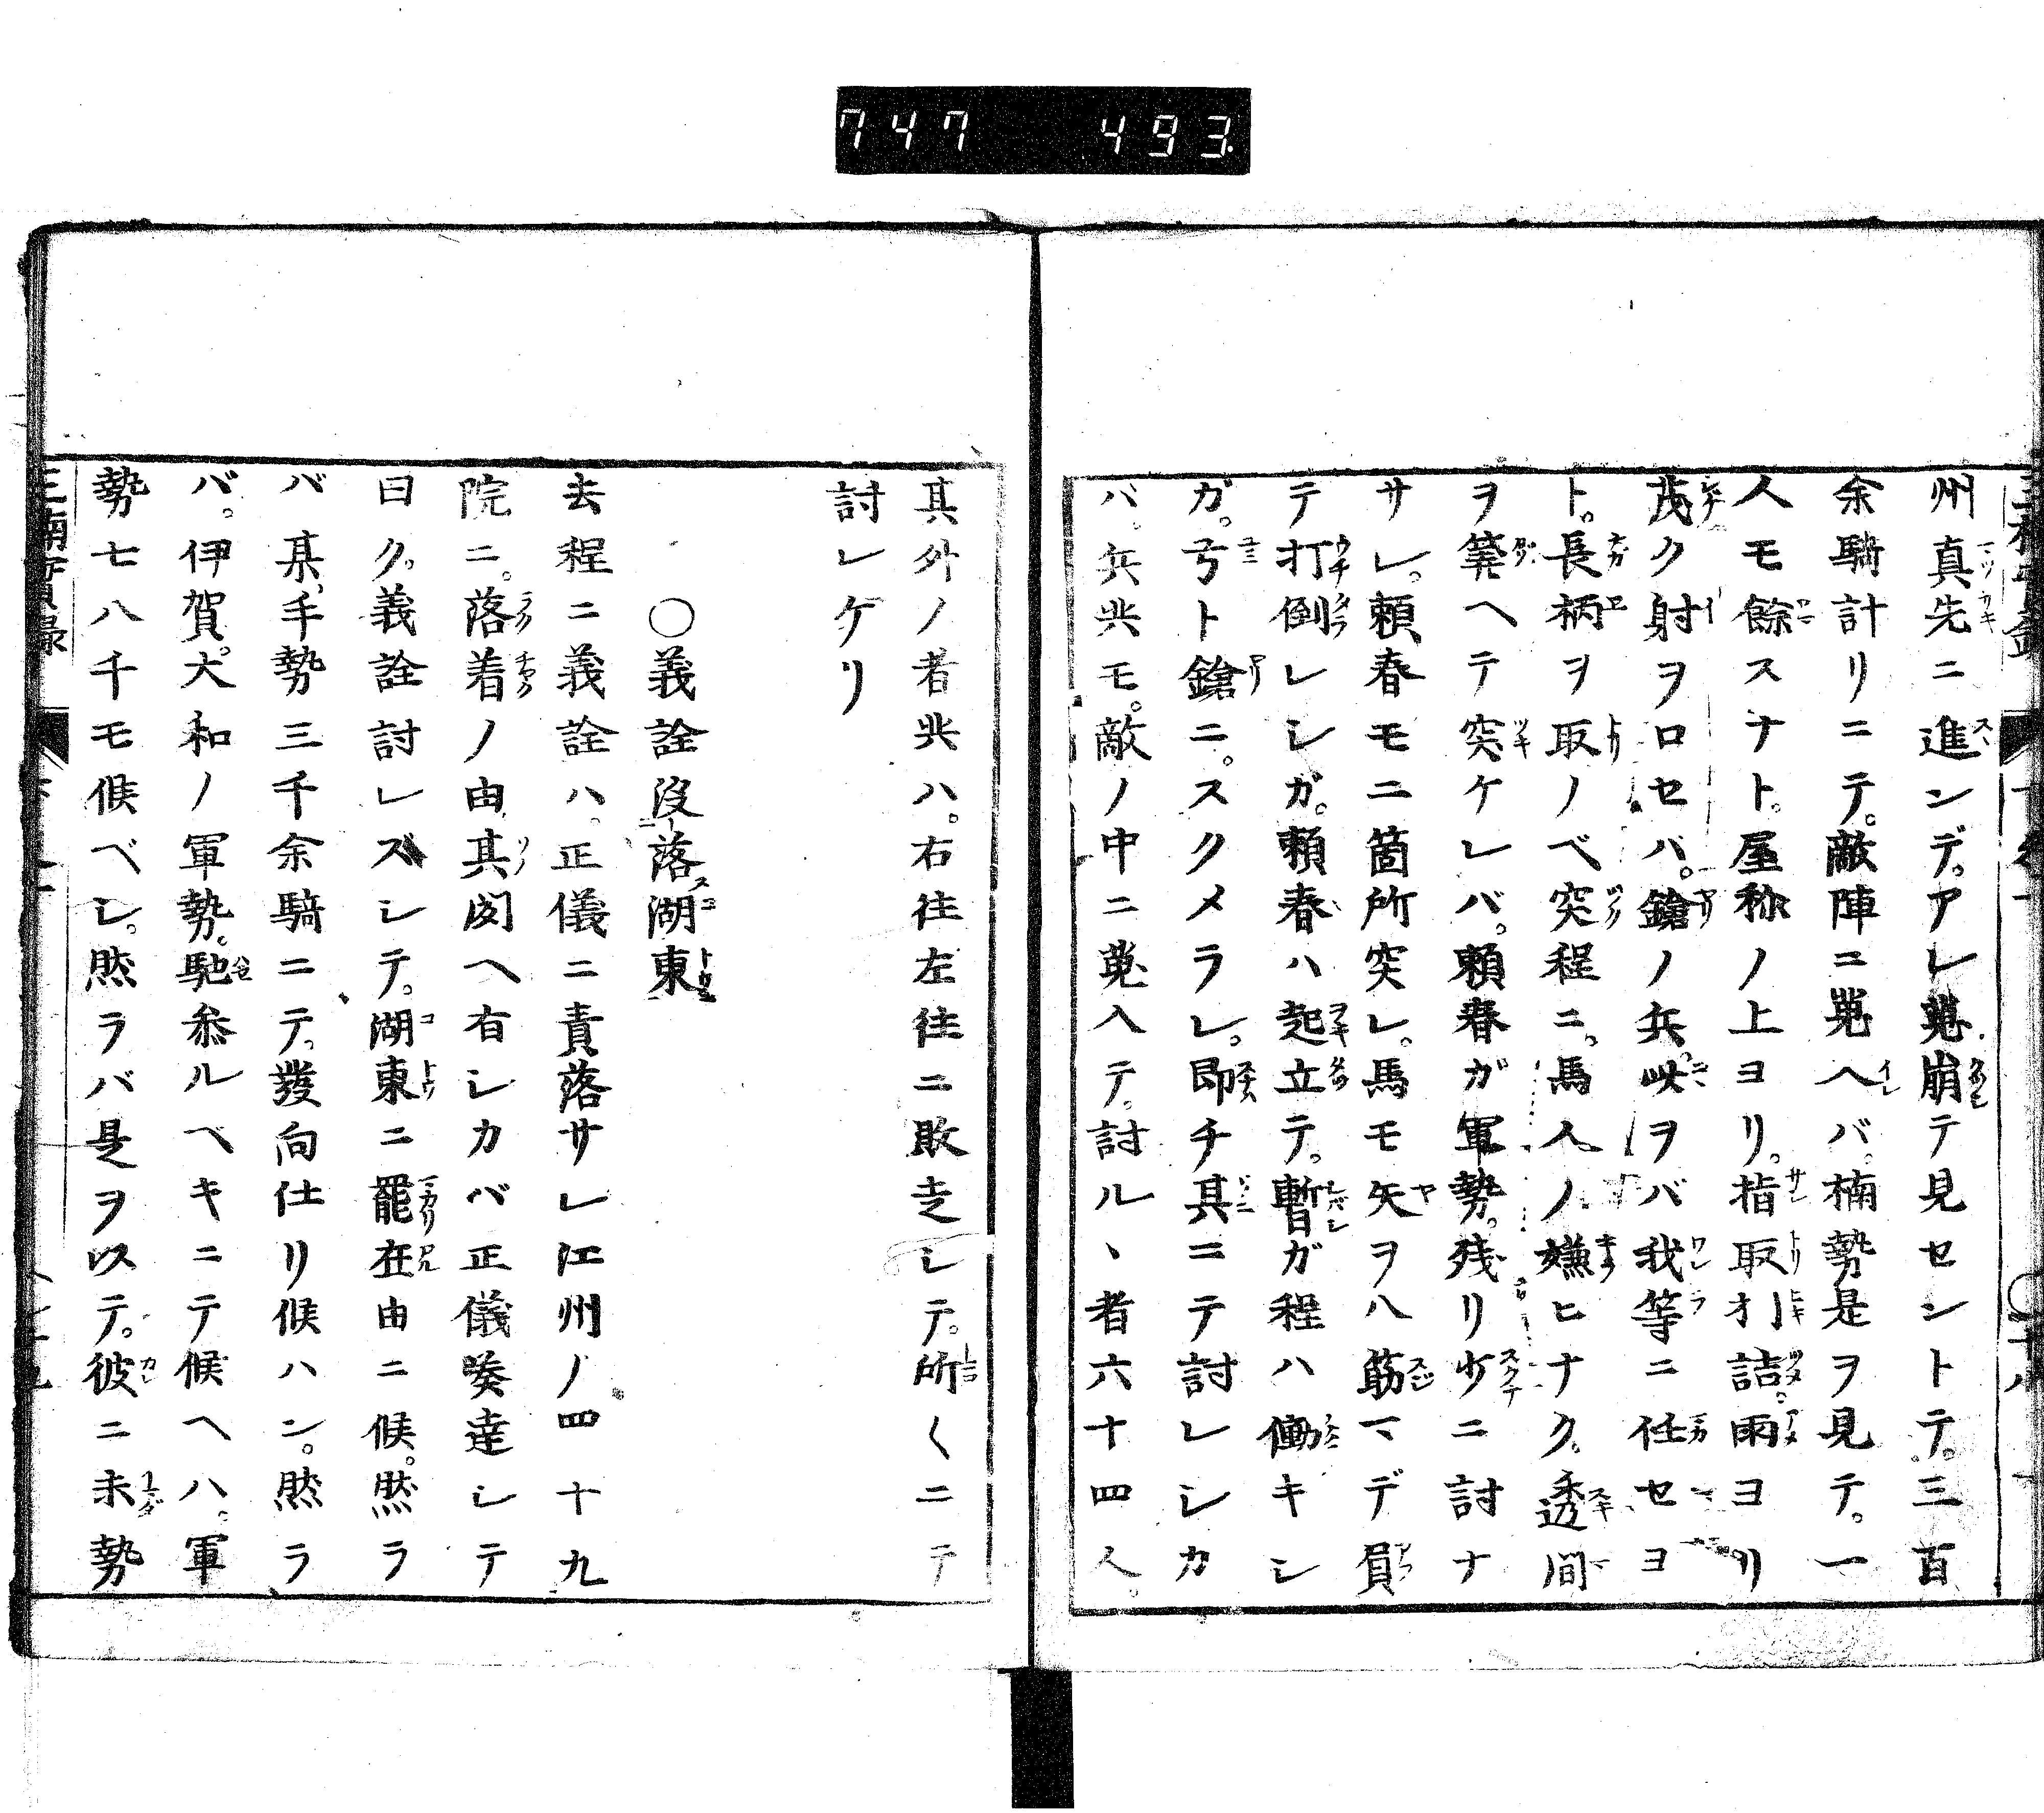 747 493
州真先ニ進ンデ。アレ蒐崩テ見セントテ。三百
余騎計リニテ。敵陣ニ蒐ヘバ。楠勢是ヲ見テ。一
人モ餘スナト。屋称ノ上ヨリ。指取引詰。雨ヨリ
茂ク射ヲロセバ。鎗ノ兵。此ヲバ我等ニ任セヨ
ト。長柄ヲ取ノベ突程ニ。馬人ノ嫌ヒナク。透間
ヲ筭ヘテ突ケレバ。頼春ガ軍勢。残リ少ニ討ナ
サレ。頼春モ二箇所突レ。馬モ矢ヲ八筋マデ負
テ打倒レシガ。頼春ハ起立テ。暫ガ程ハ働キシ
ガ。弓ト鎗ニ。スクメラレ。即チ其ニテ討レシカ
バ。兵共モ。敵ノ中ニ蒐入テ。討ル丶者六十四人。
其外ノ者共ハ。右往左往ニ敗走シテ。所〱ニテ
討レケリ
〇義詮没落湖東
去程ニ義詮ハ。正儀ニ責落サレ江州ノ四十九
院ニ。落着ノ由其聞ヘ有シカバ正儀奏達シテ
曰ク。義詮討レズシテ。湖東ニ罷在由ニ候。然ラ
バ某手勢三千余騎ニテ。發向仕リ候ハン。然ラ
バ。伊賀。大和ノ軍勢。馳参ルヘキニテ候ヘハ。軍
勢七八千モ候ベシ。然ラバ是ヲ以テ。彼ニ未勢